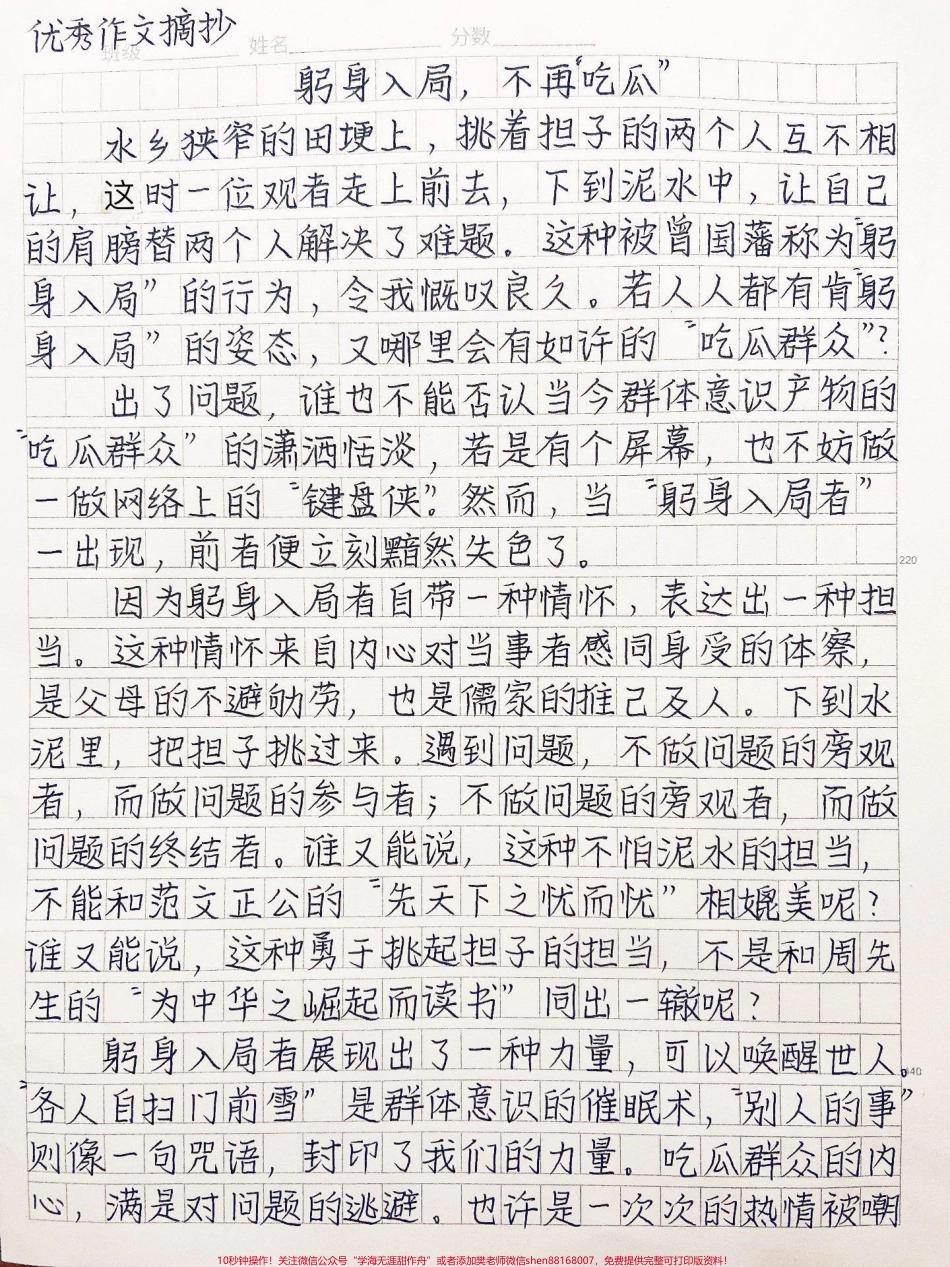 优秀作文摘抄
班级 姓名 分数
躬身入局，不再“吃瓜”
水乡狭窄的田埂上，挑着担子的两个人互不相
让，这时一位观者走上前去，下到泥水中，让自己
的肩膀替两个人解决了难题。这种被曾国藩称为“躬
身入局”的行为，令我慨叹良久。若人人都有肯“躬
身入局”的姿态，又哪里会有如许的“吃瓜群众”？
出了问题，谁也不能否认当今群体意识产物的
“吃瓜群众”的潇洒恬淡，若是有个屏幕，也不妨做
一做网络上的“键盘侠”。然而，当“躬身入局者”
一出现，前者便立刻黯然失色了。
220
因为躬身入局者自带一种情怀，表达出一种担
当。这种情怀来自内心对当事者感同身受的体察，
是父母的不避劬劳，也是儒家的推己及人。下到水
泥里，把担子挑过来。遇到问题，不做问题的旁观
者，而做问题的参与者；不做问题的旁观者，而做
问题的终结者。谁又能说，这种不怕泥水的担当，
不能和范文正公的“先天下之忧而忧”相媲美呢？
谁又能说，这种勇于挑起担子的担当，不是和周先
生的“为中华之崛起而读书”同出一辙呢？
躬身入局者展现出了一种力量，可以唤醒世人。
440
“各人自扫门前雪”是群体意识的催眠术，“别人的事”
则像一句咒语，封印了我们的力量。吃瓜群众的内
心，满是对问题的逃避。也许是一次次的热情被嘲
10秒钟操作！关注微信公众号“学海无涯甜作舟”或者添加樊老师微信shen88168007，免费提供完整可打印版资料！